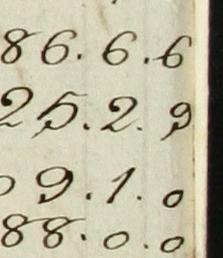 86. 6. 6
25. 2. 9
9. 1. 0
88. 0. 0